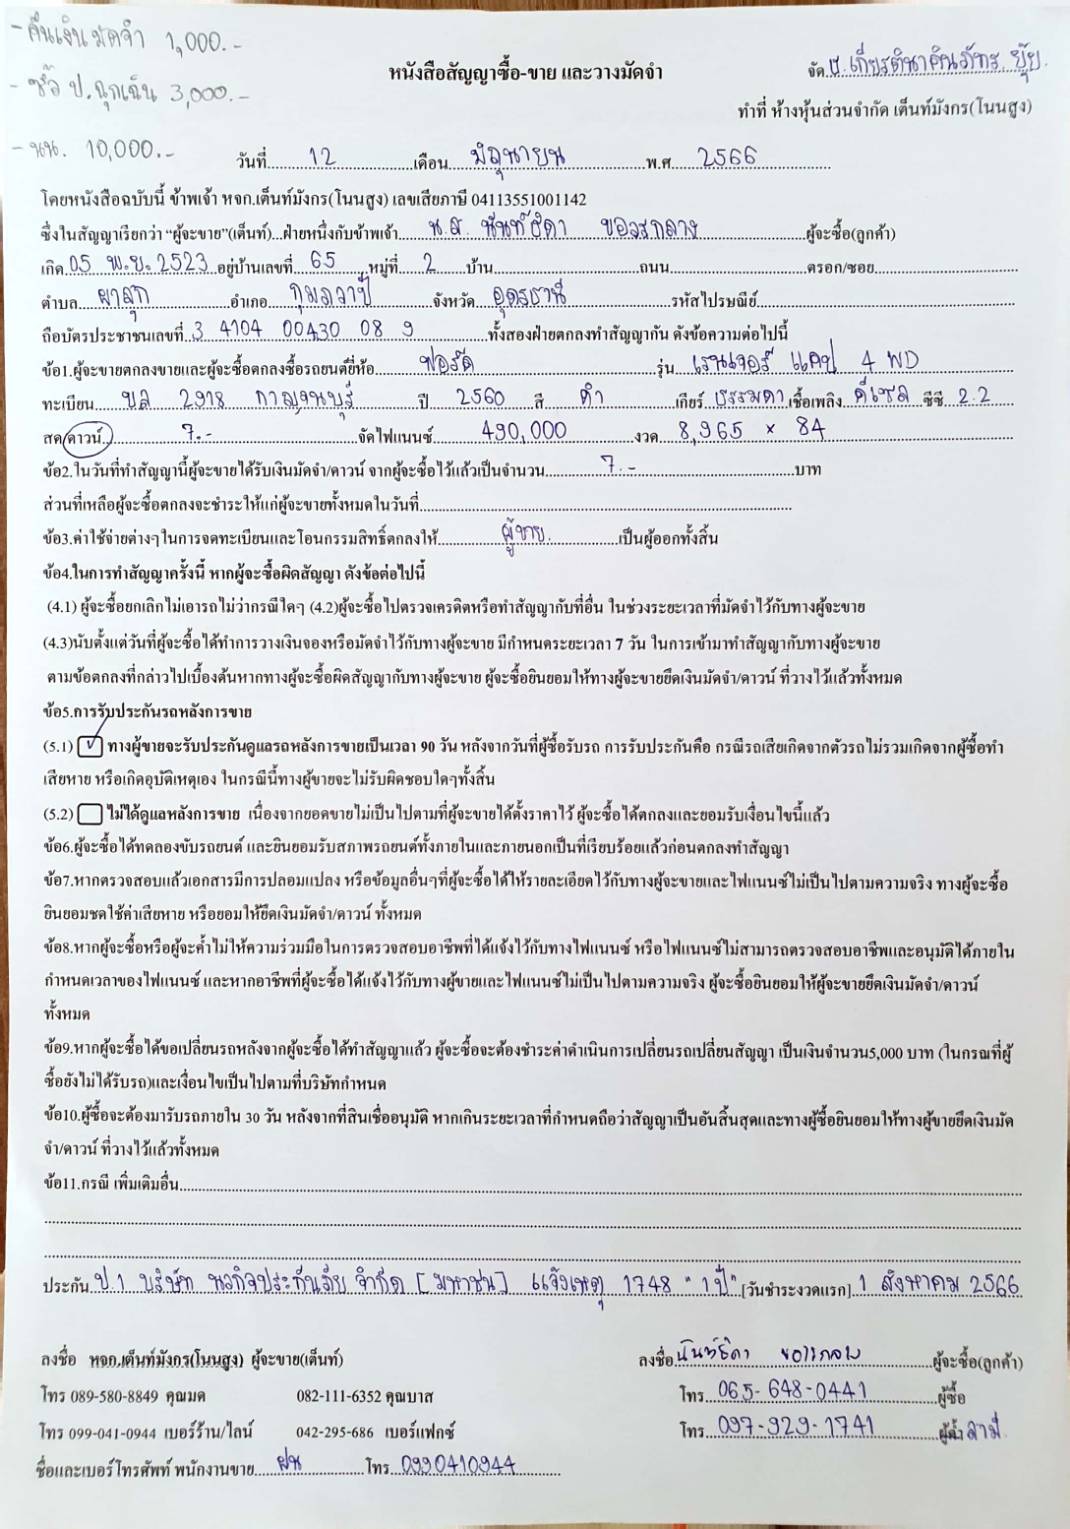 - คืนเงินมัดจำ 1,000.-
หนังสือสัญญาซื้อ-ขาย และวางมัดจำ
จัด ธ.เกียรตินาคินภัทร. ยุ้ย.
- ซื้อ ป.ฉุกเฉิน 3,000.-
ทำที่ ห้างหุ้นส่วนจำกัด เต็นท์มังกร(โนนสูง)
- นน. 10,000.-
วันที่ 12 เดือน มิถุนายน พ.ศ 2566
โดยหนังสือฉบับนี้ ข้าพเจ้า หจก.เต็นท์มังกร(โนนสูง) เลขเสียภาษี 04113551001142
ซึ่งในสัญญาเรียกว่า "ผู้จะขาย"(เต็นท์)...ฝ่ายหนึ่งกับข้าพเจ้า น.ส. นันท์ธิดา ขอวรกลาง ผู้จะซื้อ(ลูกค้า)
เกิด 05 พ.ย. 2523 อยู่บ้านเลขที่ 65 หมู่ที่ 2 บ้าน ถนน ตรอก/ซอย
ตำบล ผาสุก อำเภอ กุมภวาปี จังหวัด อุดรธานี รหัสไปรษณีย์
ถือบัตรประชาชนเลขที่ 3 4104 00430 08 9 ทั้งสองฝ่ายตกลงทำสัญญากัน ดังข้อความต่อไปนี้
ข้อ1.ผู้จะขายตกลงขายและผู้จะซื้อตกลงซื้อรถยนต์ยี่ห้อ ฟอร์ด รุ่น เรนเจอร์ แคป 4 WD
ทะเบียน 2918 กาญจนบุรี ปี 2560 สี ดำ เกียร์ ธรรมดา เชื้อเพลิง ดีเซล ซีซี 2.2
สด/ดาวน์ 7.- จัดไฟแนนซ์ 490,000 งวด 8,965 x 84
ข้อ2.ในวันที่ทำสัญญานี้ผู้จะขายได้รับเงินมัดจำ/ดาวน์ จากผู้จะซื้อไว้แล้วเป็นจำนวน 7.- บาท
ส่วนที่เหลือผู้จะซื้อตกลงจะชำระให้แก่ผู้จะขายทั้งหมดในวันที่
ข้อ3.ค่าใช้จ่ายต่างๆในการจดทะเบียนและโอนกรรมสิทธิ์ตกลงให้ ผู้ขาย. เป็นผู้ออกทั้งสิ้น
ข้อ4.ในการทำสัญญาครั้งนี้ หากผู้จะซื้อผิดสัญญา ดังข้อต่อไปนี้
(4.1) ผู้จะซื้อยกเลิกไม่เอารถไม่ว่ากรณีใดๆ (4.2)ผู้จะซื้อไปตรวจเครดิตหรือทำสัญญากับที่อื่น ในช่วงระยะเวลาที่มัดจำไว้กับทางผู้จะขาย
(4.3)นับตั้งแต่วันที่ผู้จะซื้อได้ทำการวางเงินจองหรือมัดจำไว้กับทางผู้จะขาย มีกำหนดระยะเวลา 7 วัน ในการเข้ามาทำสัญญากับทางผู้จะขาย
ตามข้อตกลงที่กล่าวไปเบื้องต้นหากทางผู้จะซื้อผิดสัญญากับทางผู้จะขาย ผู้จะซื้อยินยอมให้ทางผู้จะขายยึดเงินมัดจำ/ดาวน์ ที่วางไว้แล้วทั้งหมด
ข้อ5.การรับประกันรถหลังการขาย
(5.1) ทางผู้ขายจะรับประกันดูแลรถหลังการขายเป็นเวลา 90 วัน หลังจากวันที่ผู้ซื้อรับรถ การรับประกันคือ กรณีรถเสียเกิดจากตัวรถไม่รวมเกิดจากผู้ซื้อทำ
เสียหาย หรือเกิดอุบัติเหตุเอง ในกรณีนี้ทางผู้ขายจะไม่รับผิดชอบใดๆทั้งสิ้น
(5.2) ไม่ได้ดูแลหลังการขาย เนื่องจากยอดขายไม่เป็นไปตามที่ผู้จะขายได้ตั้งราคาไว้ ผู้จะซื้อได้ตกลงและยอมรับเงื่อนไขนี้แล้ว
ข้อ6.ผู้จะซื้อได้ทดลองขับรถยนต์ และยินยอมรับสภาพรถยนต์ทั้งภายในและภายนอกเป็นที่เรียบร้อยแล้วก่อนตกลงทำสัญญา
ข้อ7.หากตรวจสอบแล้วเอกสารมีการปลอมแปลง หรือข้อมูลอื่นๆที่ผู้จะซื้อได้ให้รายละเอียดไว้กับทางผู้จะขายและไฟแนนซ์ไม่เป็นไปตามความจริง ทางผู้จะซื้อ
ยินยอมชดใช้ค่าเสียหาย หรือยอมให้ยึดเงินมัดจำ/ดาวน์ ทั้งหมด
ข้อ8.หากผู้จะซื้อหรือผู้จะค้ำไม่ให้ความร่วมมือในการตรวจสอบอาชีพที่ได้แจ้งไว้กับทางไฟแนนซ์ หรือไฟแนนซ์ไม่สามารถตรวจสอบอาชีพและอนุมัติได้ภายใน
กำหนดเวลาของไฟแนนซ์ และหากอาชีพที่ผู้จะซื้อได้แจ้งไว้กับทางผู้ขายและไฟแนนซ์ไม่เป็นไปตามความจริง ผู้จะซื้อยินยอมให้ผู้จะขายยึดเงินมัดจำ/ดาวน์
ทั้งหมด
ข้อ9.หากผู้จะซื้อได้ขอเปลี่ยนรถหลังจากผู้จะซื้อได้ทำสัญญาแล้ว ผู้จะซื้อจะต้องชำระค่าดำเนินการเปลี่ยนรถเปลี่ยนสัญญา เป็นเงินจำนวน5,000 บาท (ในกรณที่ผู้
ซื้อยังไม่ได้รับรถ)และเงื่อนไขเป็นไปตามที่บริษัทกำหนด
ข้อ10.ผู้ซื้อจะต้องมารับรถภายใน 30 วัน หลังจากที่สินเชื่ออนุมัติ หากเกินระยะเวลาที่กำหนดถือว่าสัญญาเป็นอันสิ้นสุดและทางผู้ซื้อยินยอมให้ทางผู้ขายยึดเงินมัด
จำ/ดาวน์ ที่วางไว้แล้วทั้งหมด
ข้อ11.กรณี เพิ่มเติมอื่น
ประกัน ป.1 บริษัท นวกิจประกันภัย จำกัด [มหาชน] แจ้งเหตุ 1748 "1ปี" [วันชำระงวดแรก] 1 สิงหาคม 2566
ลงชื่อ หจก.เต็นท์มังกร(โนนสูง) ผู้จะขาย(เต็นท์) ลงชื่อ นันท์ธิดา ขอวรกลาง ผู้จะซื้อ(ลูกค้า)
โทร 089-580-8849 คุณมด 082-111-6352 คุณบาส โทร. 065-648-0441 ผู้ซื้อ
โทร 099-041-0944 เบอร์ร้าน/ไลน์ 042-295-686 เบอร์แฟกซ์ โทร. 097-929-1741 ผู้ค้ำ สามี
ชื่อและเบอร์โทรศัพท์ พนักงานขาย ฝน โทร. 0990410944